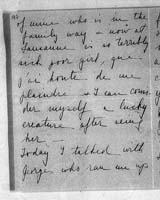 who is in the
family way & now at
Lausanne is so terribly
sick poor girl, que
j'ai honte de me
plaindre & I can consi
der myself a lucky
creature after seeing
her —
Today I talked with
who ran me up